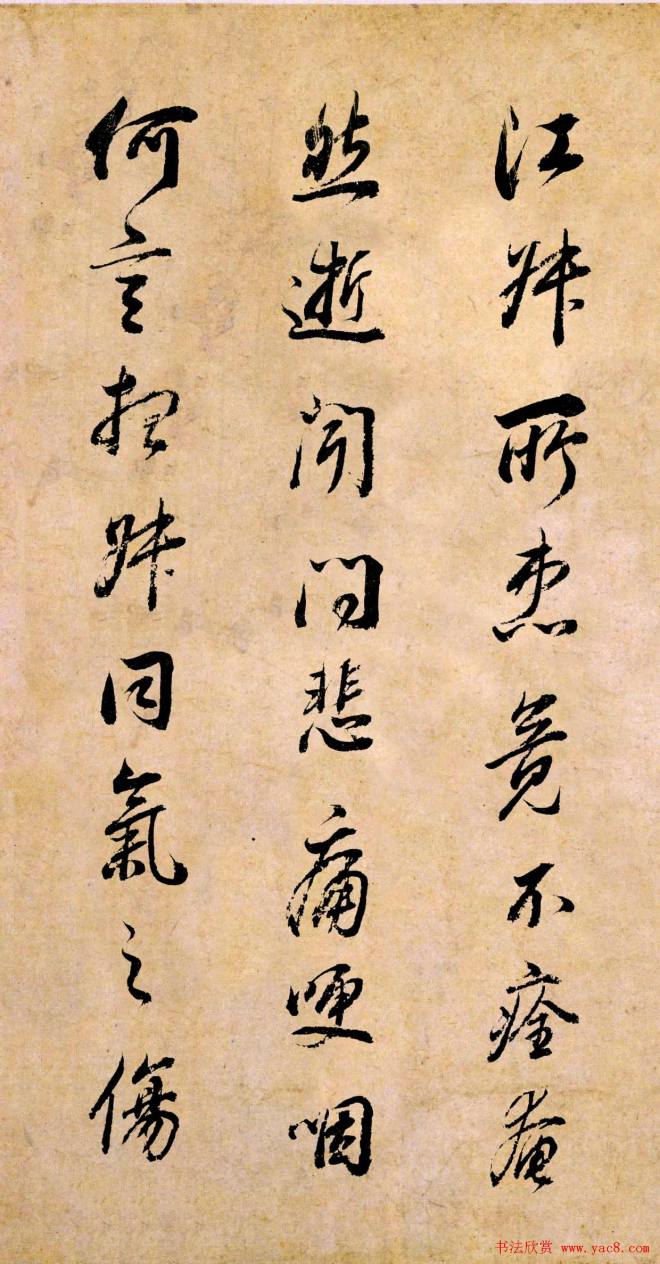 江妹所患竟不痊奄
然逝闻问悲痛哽咽
何言想妹同氣之傷
书法欣赏 www.yac8.com